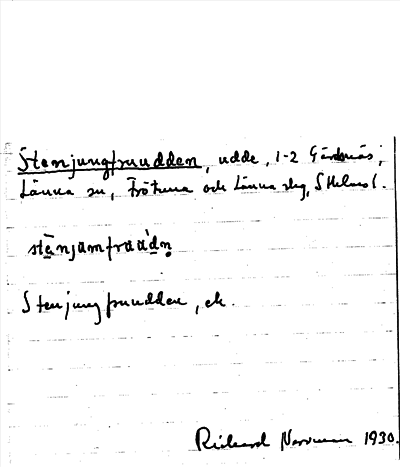 Stenjungfruudden, udde, 1-2 Gärdsnäs;
Länna sn, Frötuna och Länna slg, Sthlms l.
stēnjuṃfruu̇̀ḍṇ
Stenjungfruudden, ek.
Rickard Norman 1930.